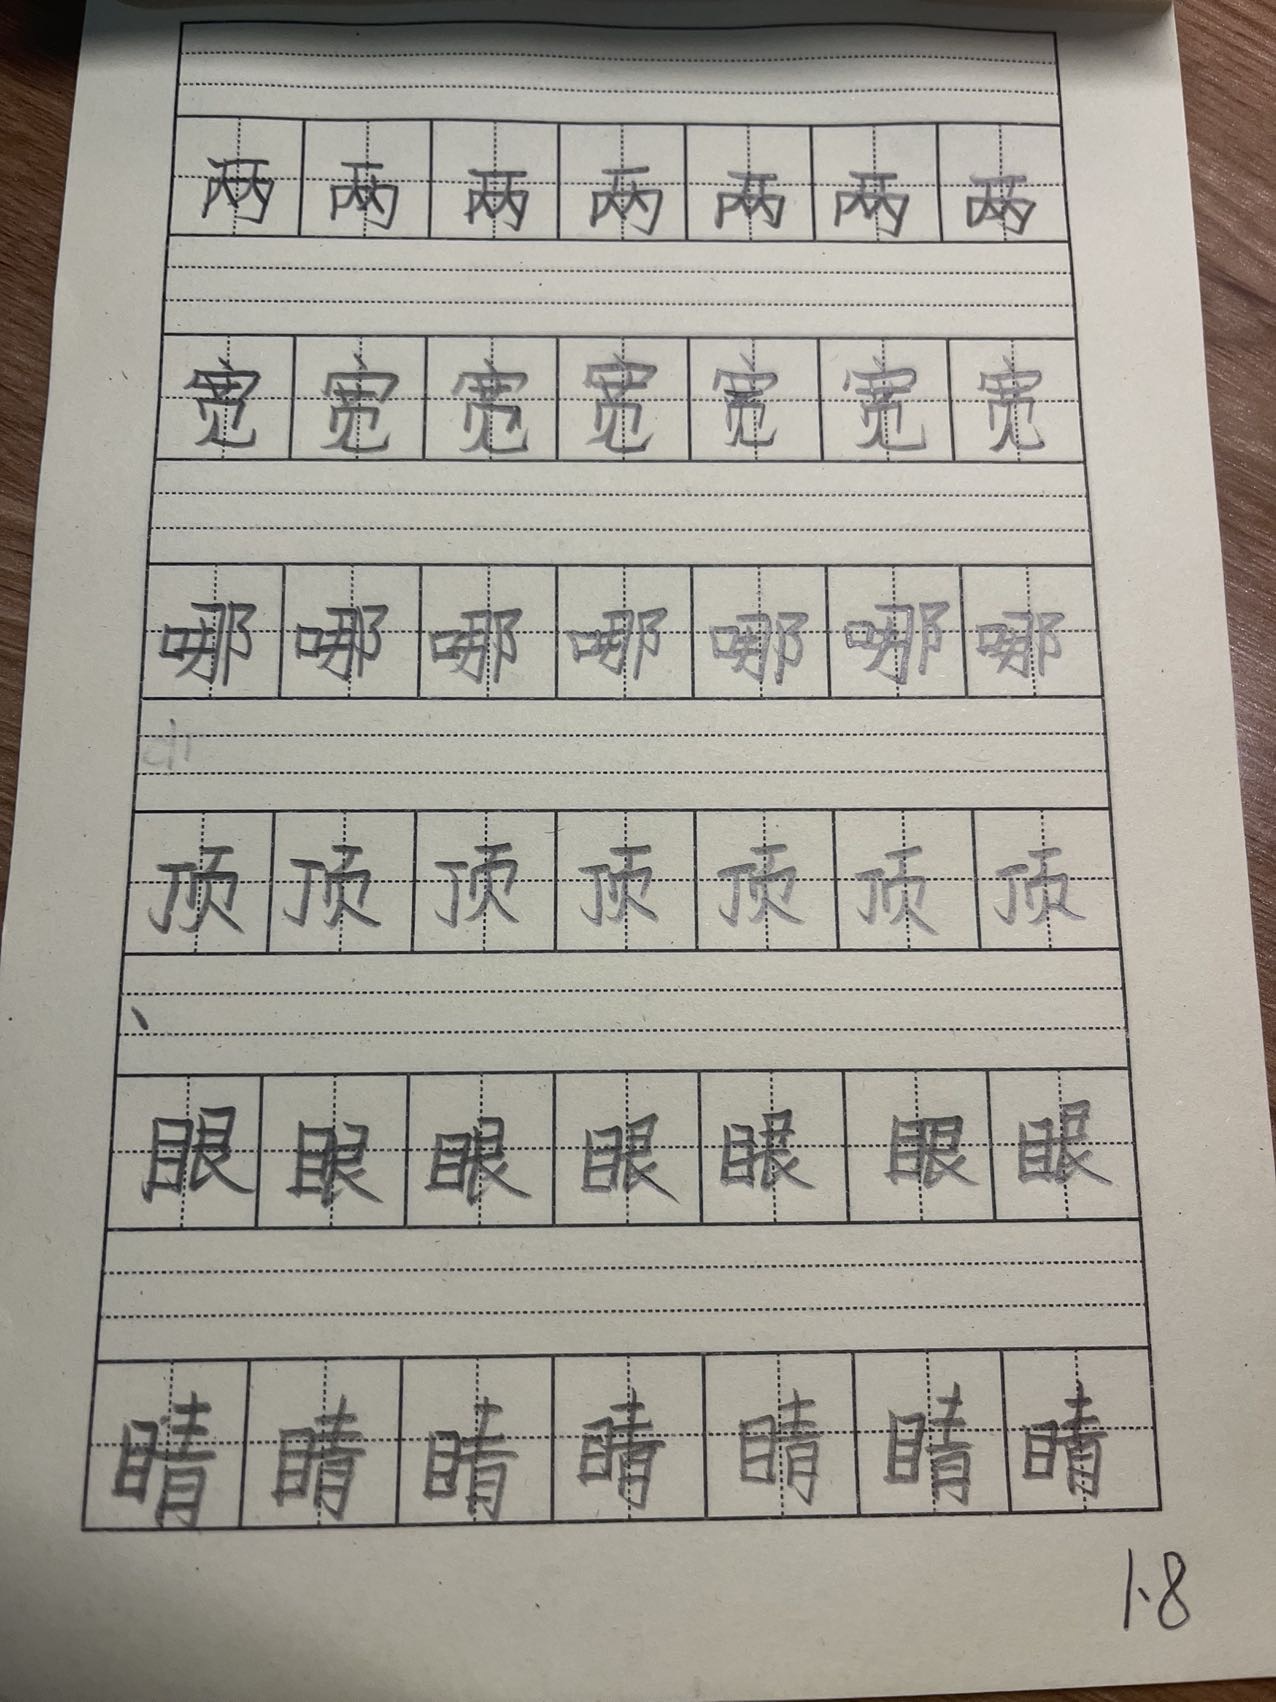 两两两两两两两
宽宽宽宽宽宽宽
哪哪哪哪哪哪哪
di
顶顶顶顶顶顶顶
、
眼眼眼眼眼眼眼
睛睛睛睛睛睛睛
1.8